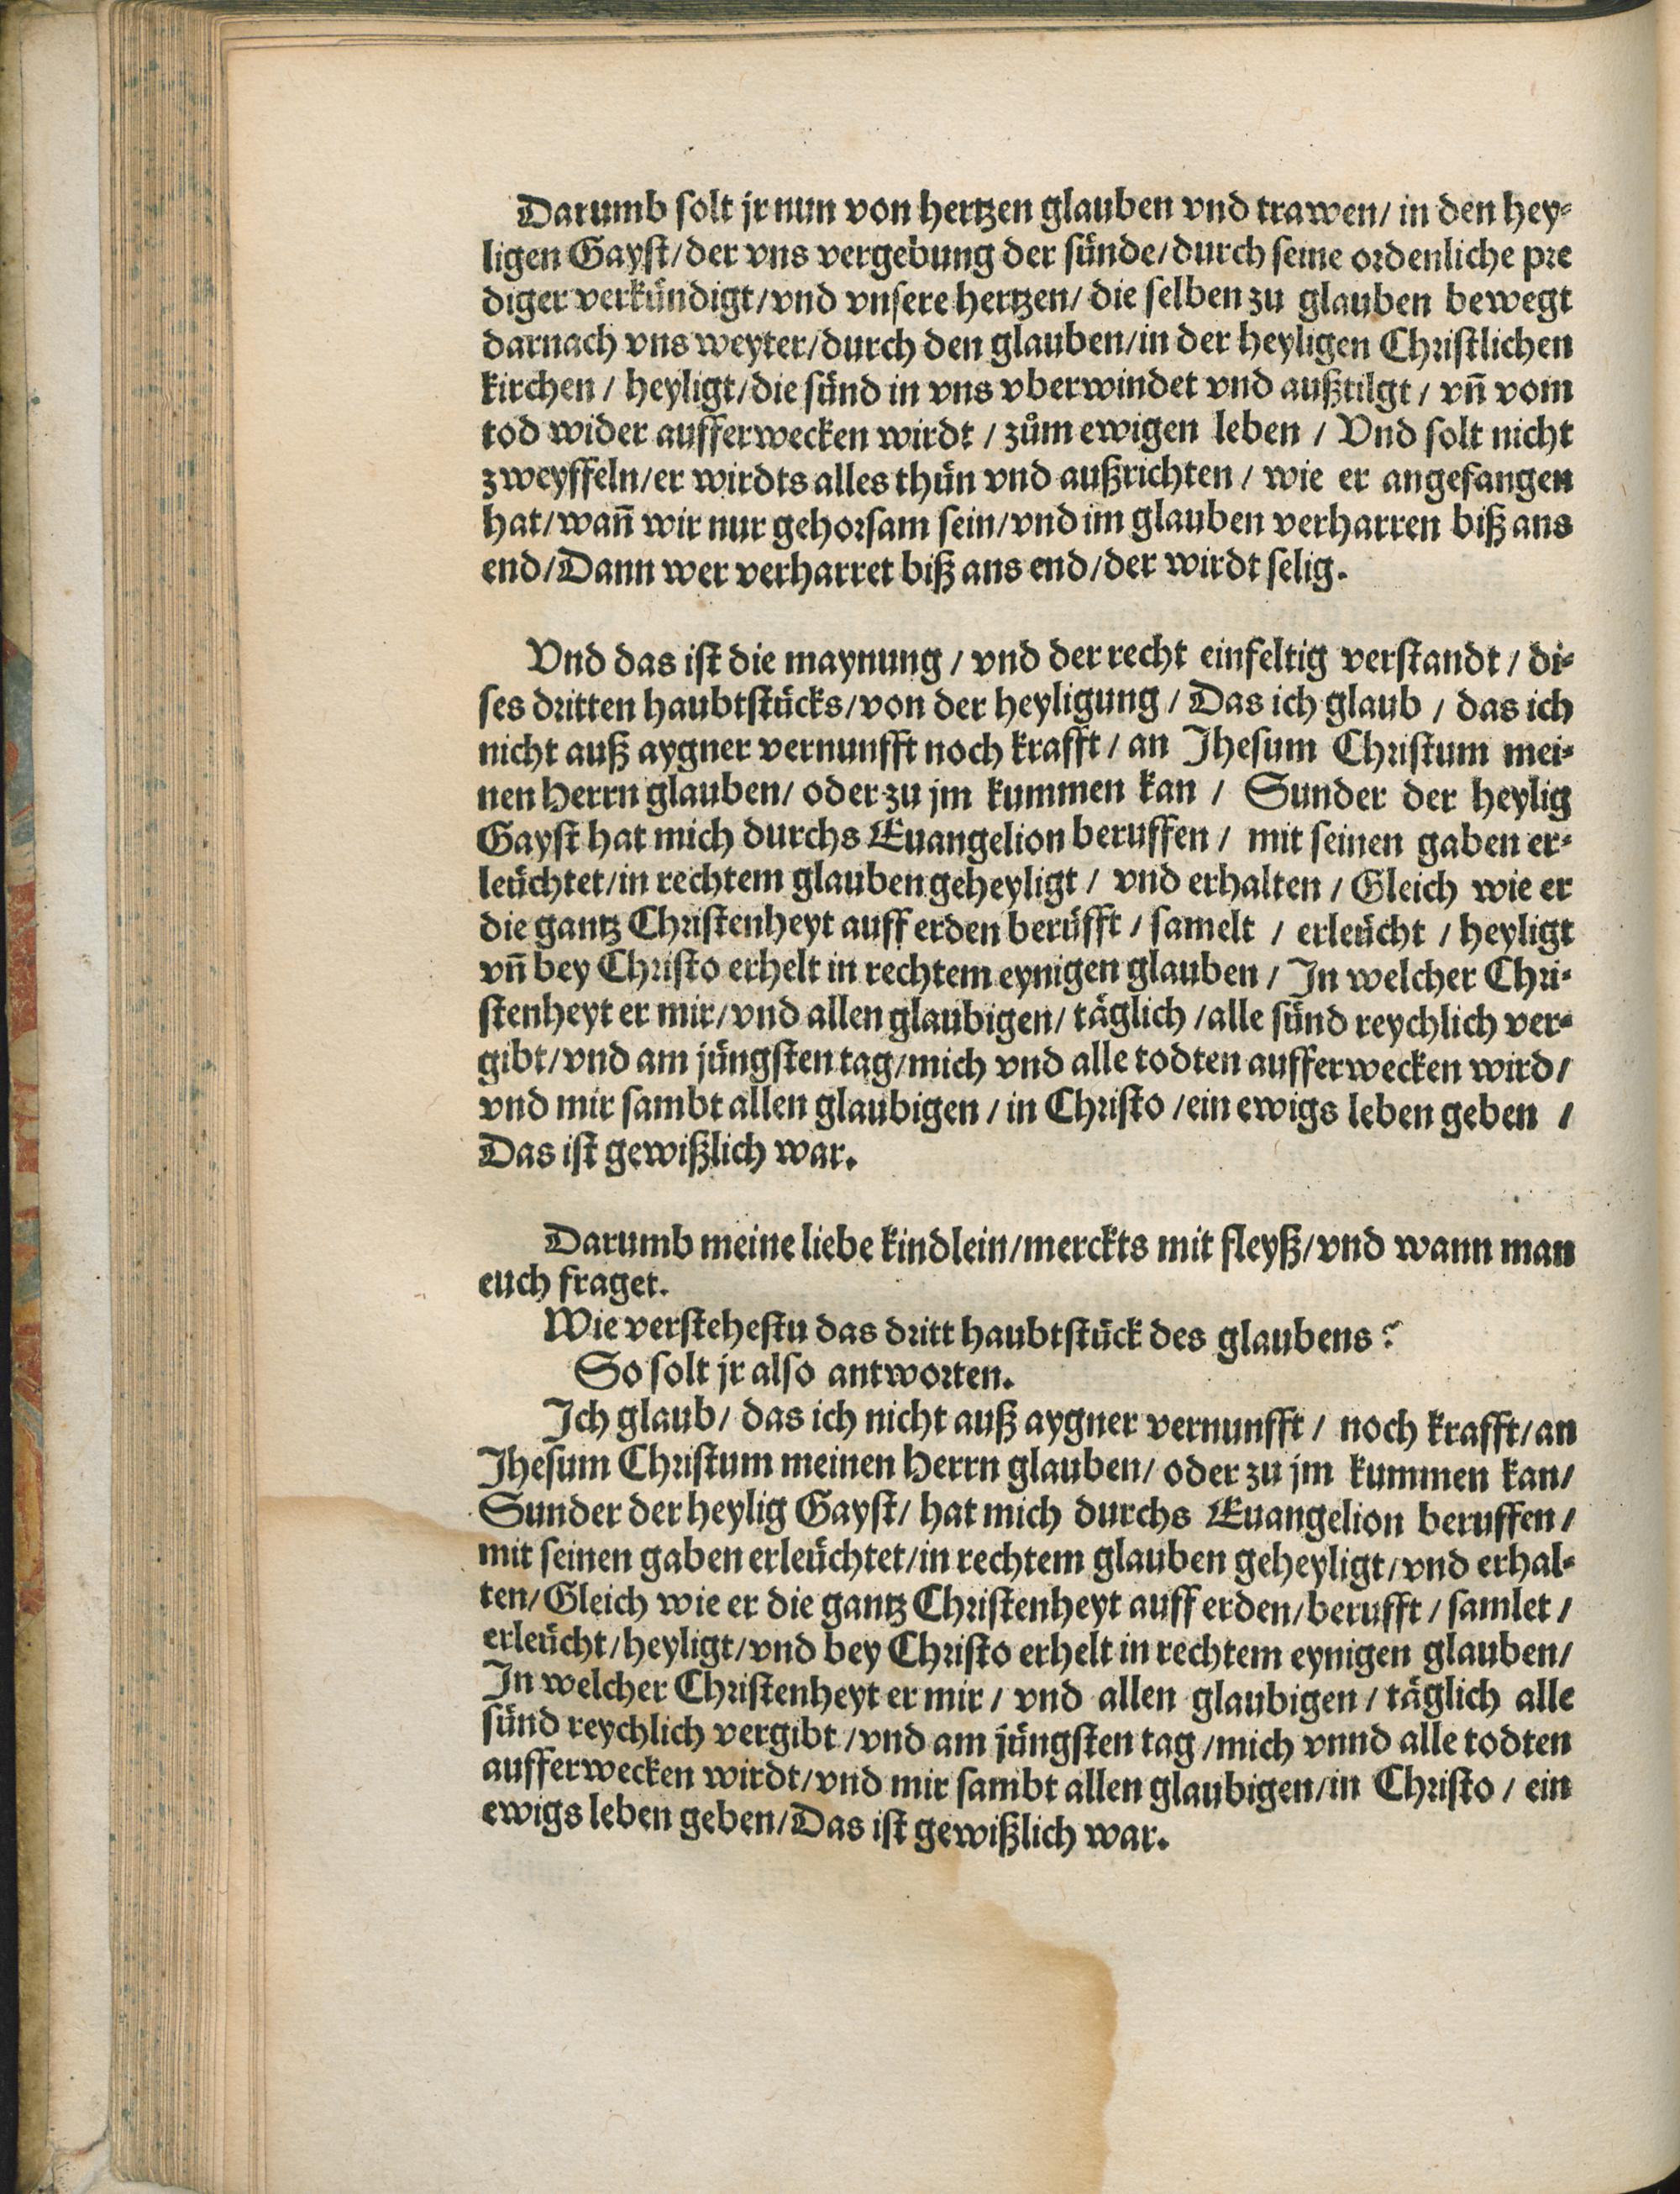 Darumb solt jr nun von hertzen glauben vnd trawen/ in den hey-
ligen Gayst/der vns vergebung der sünde/durch seine ordenliche pre
diger verkündigt/vnd vnsere hertzen/ die selben zu glauben bewegt
darnach vns weyter/durch den glauben/in der heyligen Christlichen
kirchen / heyligt/die sünd in vns vberwindet vnd außtilgt / vñ vom
tod wider aufferwecken wirdt / zům ewigen leben / Vnd solt nicht
zweyffeln/er wirdts alles thün vnd außrichten / wie er angefangen
hat/wañ wir nur gehorsam sein/vnd im glauben verharren biß ans
end/Dann wer verharret biß ans end/der wirdt selig.
Vnd das ist die maynung / vnd der recht einfeltig verstandt / di-
ses dritten haubtstücks/von der heyligung / Das ich glaub / das ich
nicht auß aygner vernunfft noch krafft / an Jhesum Christum mei-
nen Herrn glauben/ oder zu jm kummen kan / Sunder der heylig
Gayst hat mich durchs Euangelion beruffen / mit seinen gaben er-
leüchtet/in rechtem glauben geheyligt / vnd erhalten / Gleich wie er
die gantz Christenheyt auff erden berüfft / samelt / erleücht / heyligt
vñ bey Christo erhelt in rechtem eynigen glauben / In welcher Chri-
stenheyt er mir/vnd allen glaubigen/ täglich /alle sünd reychlich ver-
gibt/vnd am jüngsten tag/mich vnd alle todten aufferwecken wird/
vnd mir sambt allen glaubigen / in Christo /ein ewigs leben geben /
Das ist gewißlich war.
Darumb meine liebe kindlein/merckts mit fleyß/vnd wann man
euch fraget.
Wie verstehestu das dritt haubtstück des glaubens?
So solt jr also antworten.
Ich glaub/ das ich nicht auß aygner vernunfft / noch krafft/an
Jhesum Christum meinen Herrn glauben/ oder zu jm kummen kan/
Sunder der heylig Gayst/ hat mich durchs Euangelion beruffen/
mit seinen gaben erleüchtet/in rechtem glauben geheyligt/vnd erhal-
ten/Gleich wie er die gantz Christenheyt auff erden/berufft / samlet /
erleücht/heyligt/vnd bey Christo erhelt in rechtem eynigen glauben/
In welcher Christenheyt er mir / vnd allen glaubigen / täglich alle
sünd reychlich vergibt /vnd am jüngsten tag /mich vnnd alle todten
aufferwecken wirdt/vnd mir sambt allen glaubigen/in Christo / ein
ewigs leben geben/Das ist gewißlich war.